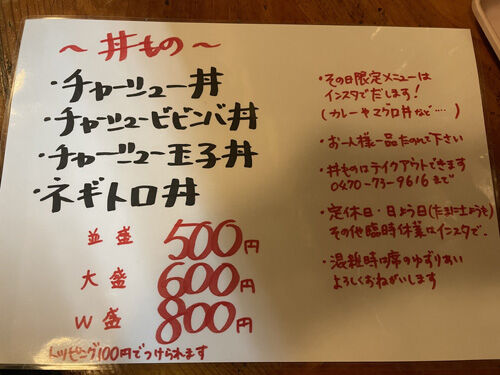 ～丼もの～
・チャーシュー丼
・チャーシュービビンバ丼
・チャーシュー玉子丼
・ネギトロ丼
並盛 500円
大盛 600円
W盛 800円
トッピング100円でつけられます
・その日限定メニューは
インスタでだします！
(カレーやマグロ丼など‥‥)
・お一人様一品たのんで下さい
・丼ものはテイクアウトできます
0470-73-9616まで
・定休日・日よう日(たまに土ようも)
その他臨時休業はインスタで、
・混雑時は席のゆずりあい
よろしくおねがいします